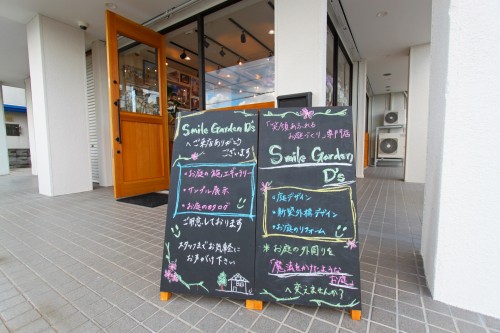 Smile Garden D's
へご来店ありがとう
ございます!
・お庭の施工ギャラリー
・サンプル展示
・お庭のカタログ
ご用意しております
スタッフまでお気軽に
お声がけ下さい
「笑顔あふれる
お庭づくり」専門店
Smile Garden
D's
・庭デザイン
・新築外構デザイン
・お庭のリフォーム
※お庭の外周りを
「魔法をかけたような
お庭」
へ変えませんか?